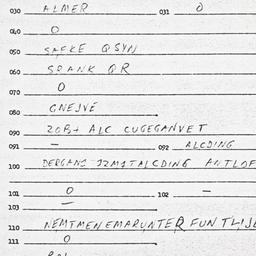 030 ALMER 031 0
040 0
050 SAFKE QSYN
060 SPANK QR
070 0
080 GNEJVE
090 ZOB+ ALC CUGEGANVET
091 - 092 ALCDING
100 DERGANS 22M1TALCDING ANTLOF
101 0 102 -
103 -
110 NEMTMENEMARUNTER FUNTLIJE
111 0